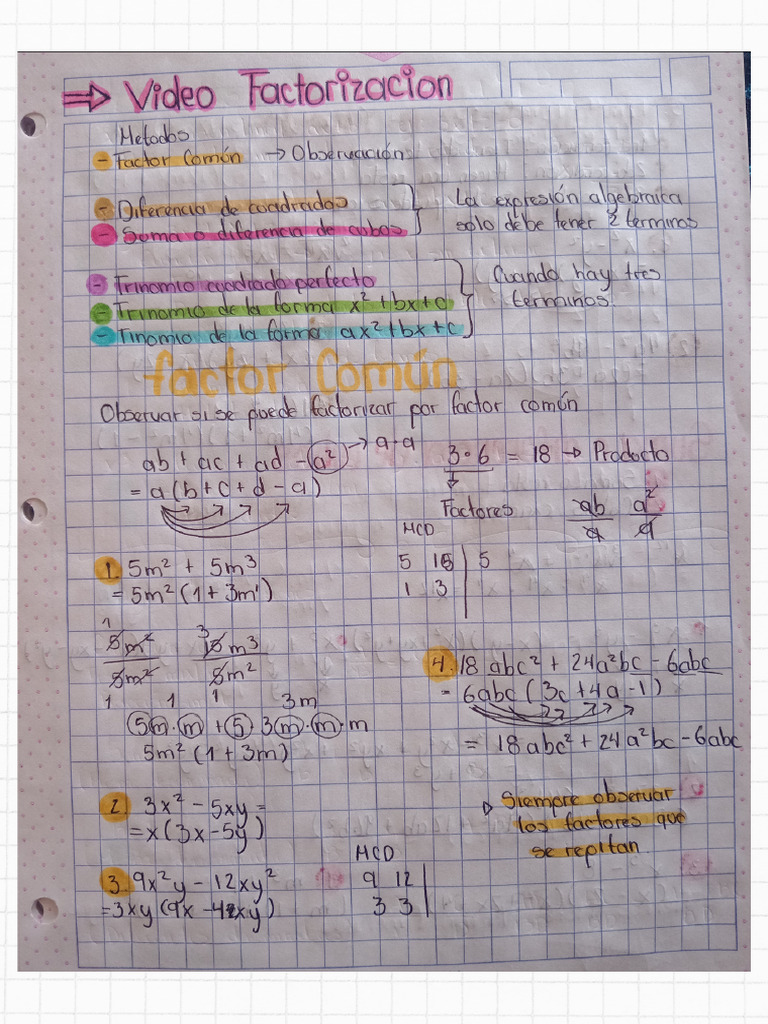 ⇒ Video Factorizacion
Metodos
- Factor Común → Observación
- Diferencia de cuadrados
- Suma o diferencia de cubos
La expresión algebraica
solo debe tener 2 terminos
- Trinomio cuadrado perfecto
- Trinomio de la forma x² + bx + c
- Tinomio de la forma ax² + bx + c
Cuando hay tres
terminos
factor Común
Observar si se puede factorizar por factor común
ab + ac + ad - a² → a·a
= a(b + c + d - a)
3·6 = 18 → Producto
Factores
ab/a a²/a
MCD
5 15 | 5
1 3
1. 5m² + 5m³
= 5m² (1 + 3m¹)
1 3
5m² 15m³
5m² 5m²
1 1 1 3m
5m·m + 5·3m·m·m
5m² (1 + 3m)
4. 18 abc² + 24a²bc - 6abc
= 6abc (3c + 4a - 1)
= 18abc² + 24a²bc - 6abc
2. 3x² - 5xy =
= x(3x - 5y)
Siempre observar
los factores que
se repitan
3. 9x²y - 12xy²
= 3xy (9x - xy)
MCD
9 12
3 3